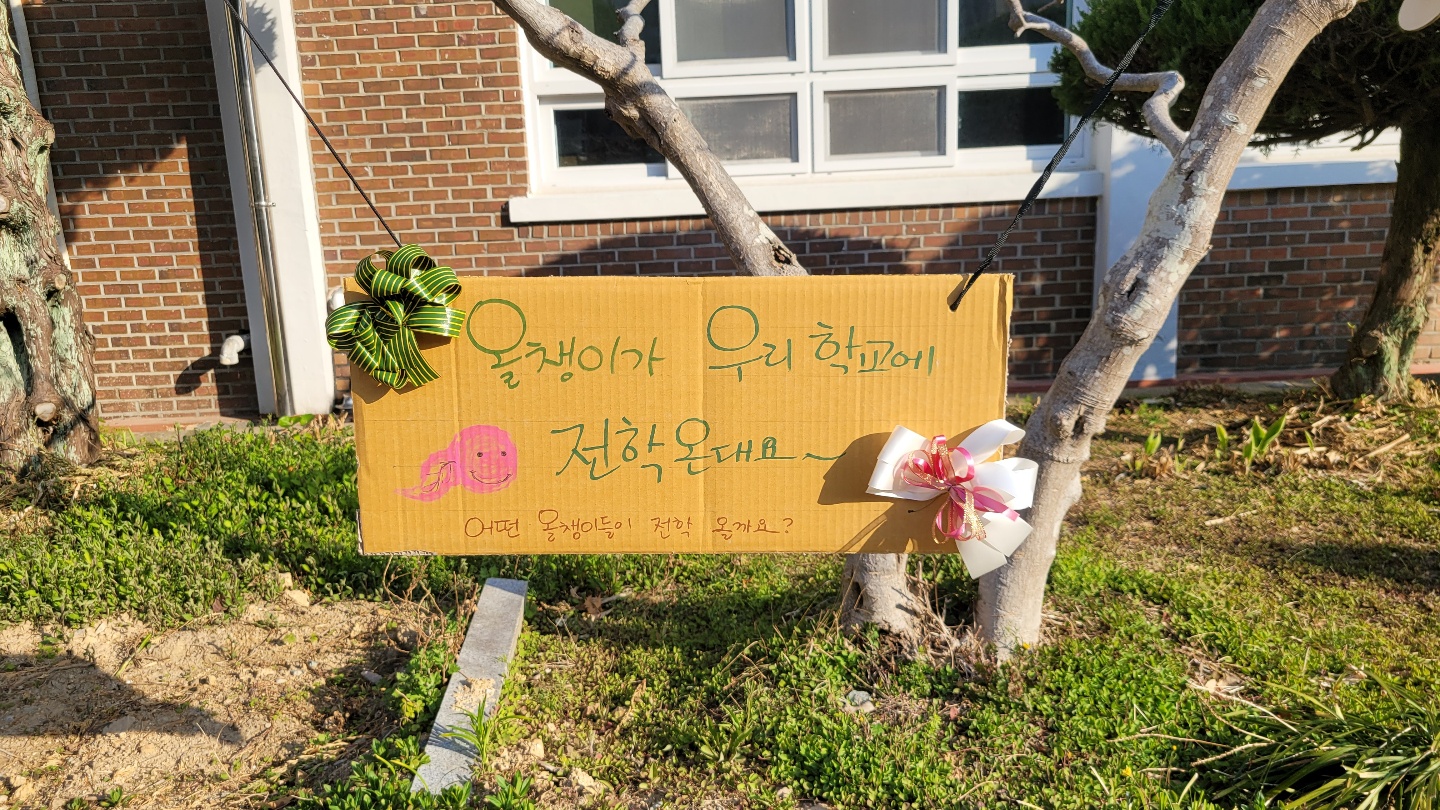 올챙이가 우리 학교에
전학온대요~
어떤 올챙이들이 전학 올까요?